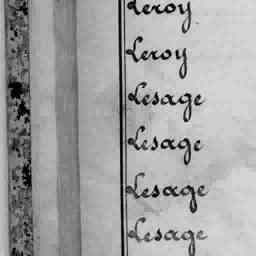 Leroy
Leroy
Lesage
Lesage
Lesage
Lesage